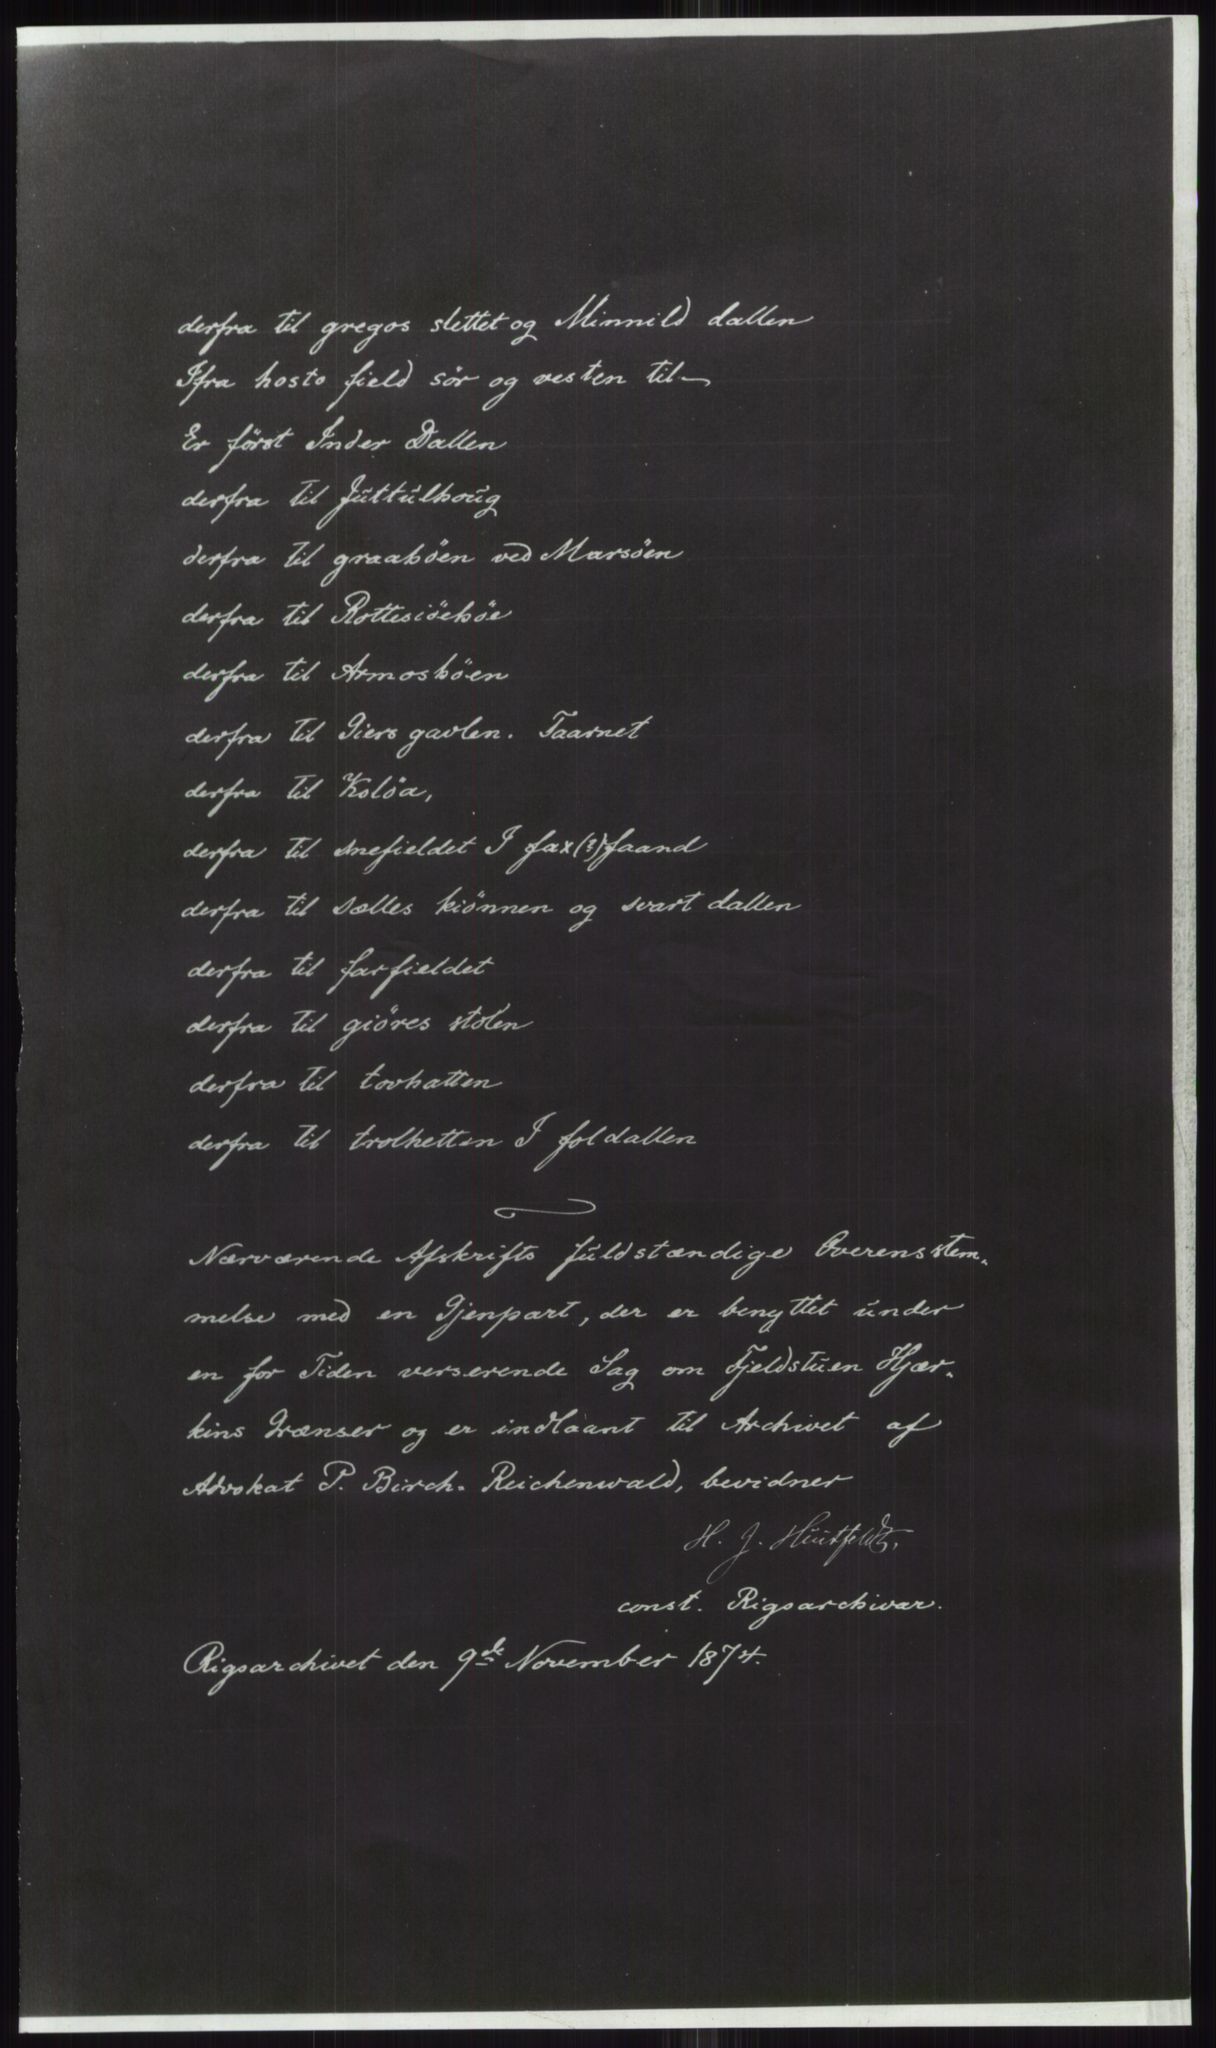 derfra til gregos slettet og Minnild dallen
Ifra hosto field sör og vesten til
Er först Inder Dallen
derfra til Juttulhoug
derfra til graahöen ved Marsöen
derfra til Rottesiöehöe
derfra til Armoshöen
derfra til Giers gavlen. Taarnet
derfra til Kolöa,
derfra til snefieldet I fax(?)faand
derfra til sælles kiönnen og svart dallen
derfra til farfieldet
derfra til giöres stolen
derfra til tovhatten
derfra til trolhetten I foldallen
Nærværende Afskrifts fuldstændige Overensstem-
melse med en Gjenpart, der er benyttet under
en for Tiden verserende Sag om Fjeldstuen Hjær-
kins Grænser og er indlaant til Archivet af
Advokat P. Birch-Reichenwald, bevidner
H. J. Huitfeldt,
const. Rigsarchivar.
Rigsarchivet den 9de November 1874.